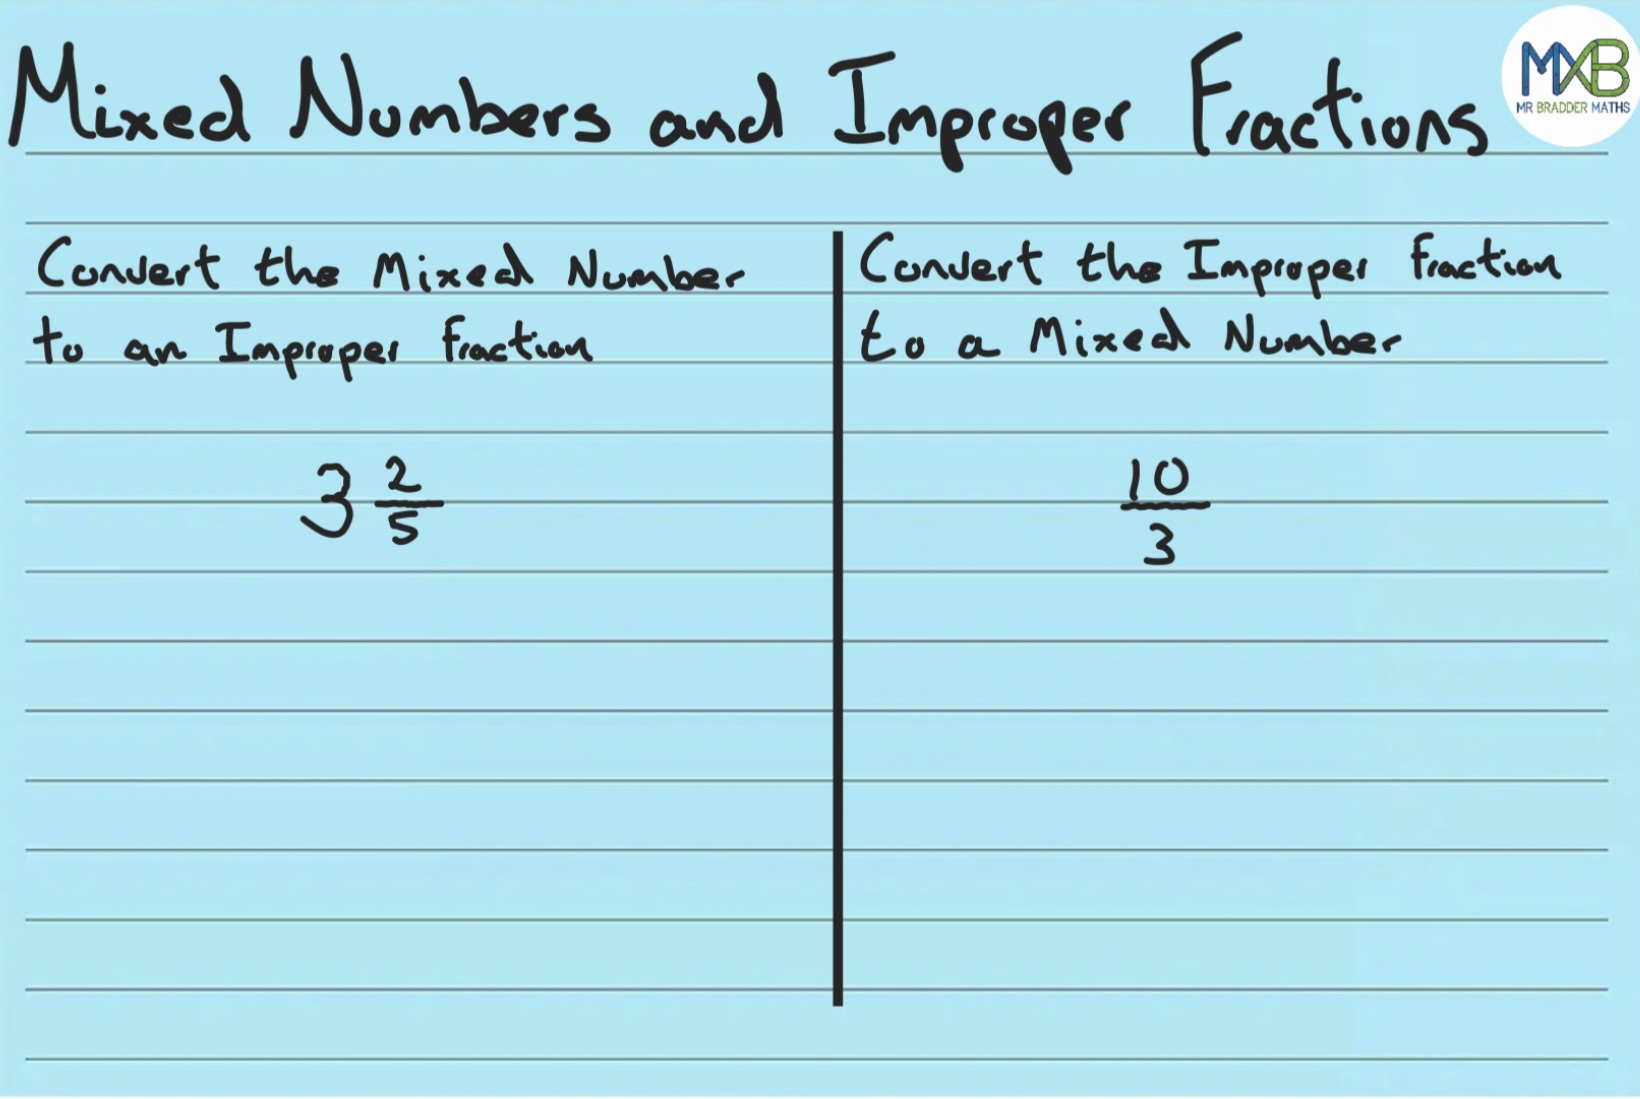 Mixed Numbers and Improper Fractions
MXB
MR BRADDER MATHS
Convert the Mixed Number
to an Improper fraction
3 2/5
Convert the Improper fraction
to a Mixed Number
10/3